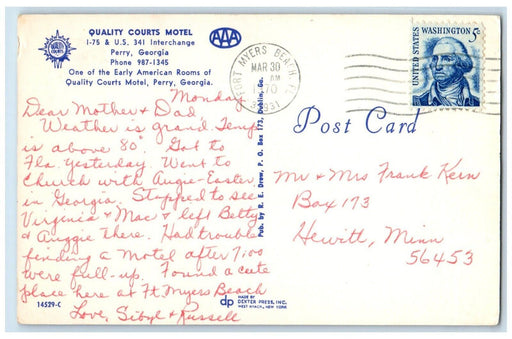 QUALITY COURTS MOTEL
I-75 & U.S. 341 Interchange
Perry, Georgia
Phone 987-1345
One of the Early American Rooms of
Quality Courts Motel, Perry, Georgia.
QUALITY COURTS
AAA
FORT MYERS BEACH, FL
MAR 30
AM
1970
33931
UNITED STATES
WASHINGTON 5c
Monday
Dear Mother & Dad
Weather is grand. Temp
is above 80°. Got to
Fla. yesterday. Went to
Church with Augie-Easter
in Georgia. Stopped to see
Virginia & Mac & left Betty
& Auggie there. Had trouble
finding a motel after 7:00
were full-up. Found a cute
place here at Ft. Myers Beach
Love, Sibyl & Russell
14529-C
Pub. by R. E. Drew, P. O. Box 173, Dublin, Ga.
dp
MADE BY
DEXTER PRESS, INC.
WEST NYACK, NEW YORK
Post Card
Mr & Mrs Frank Kern
Box 173
Hewitt, Minn
56453